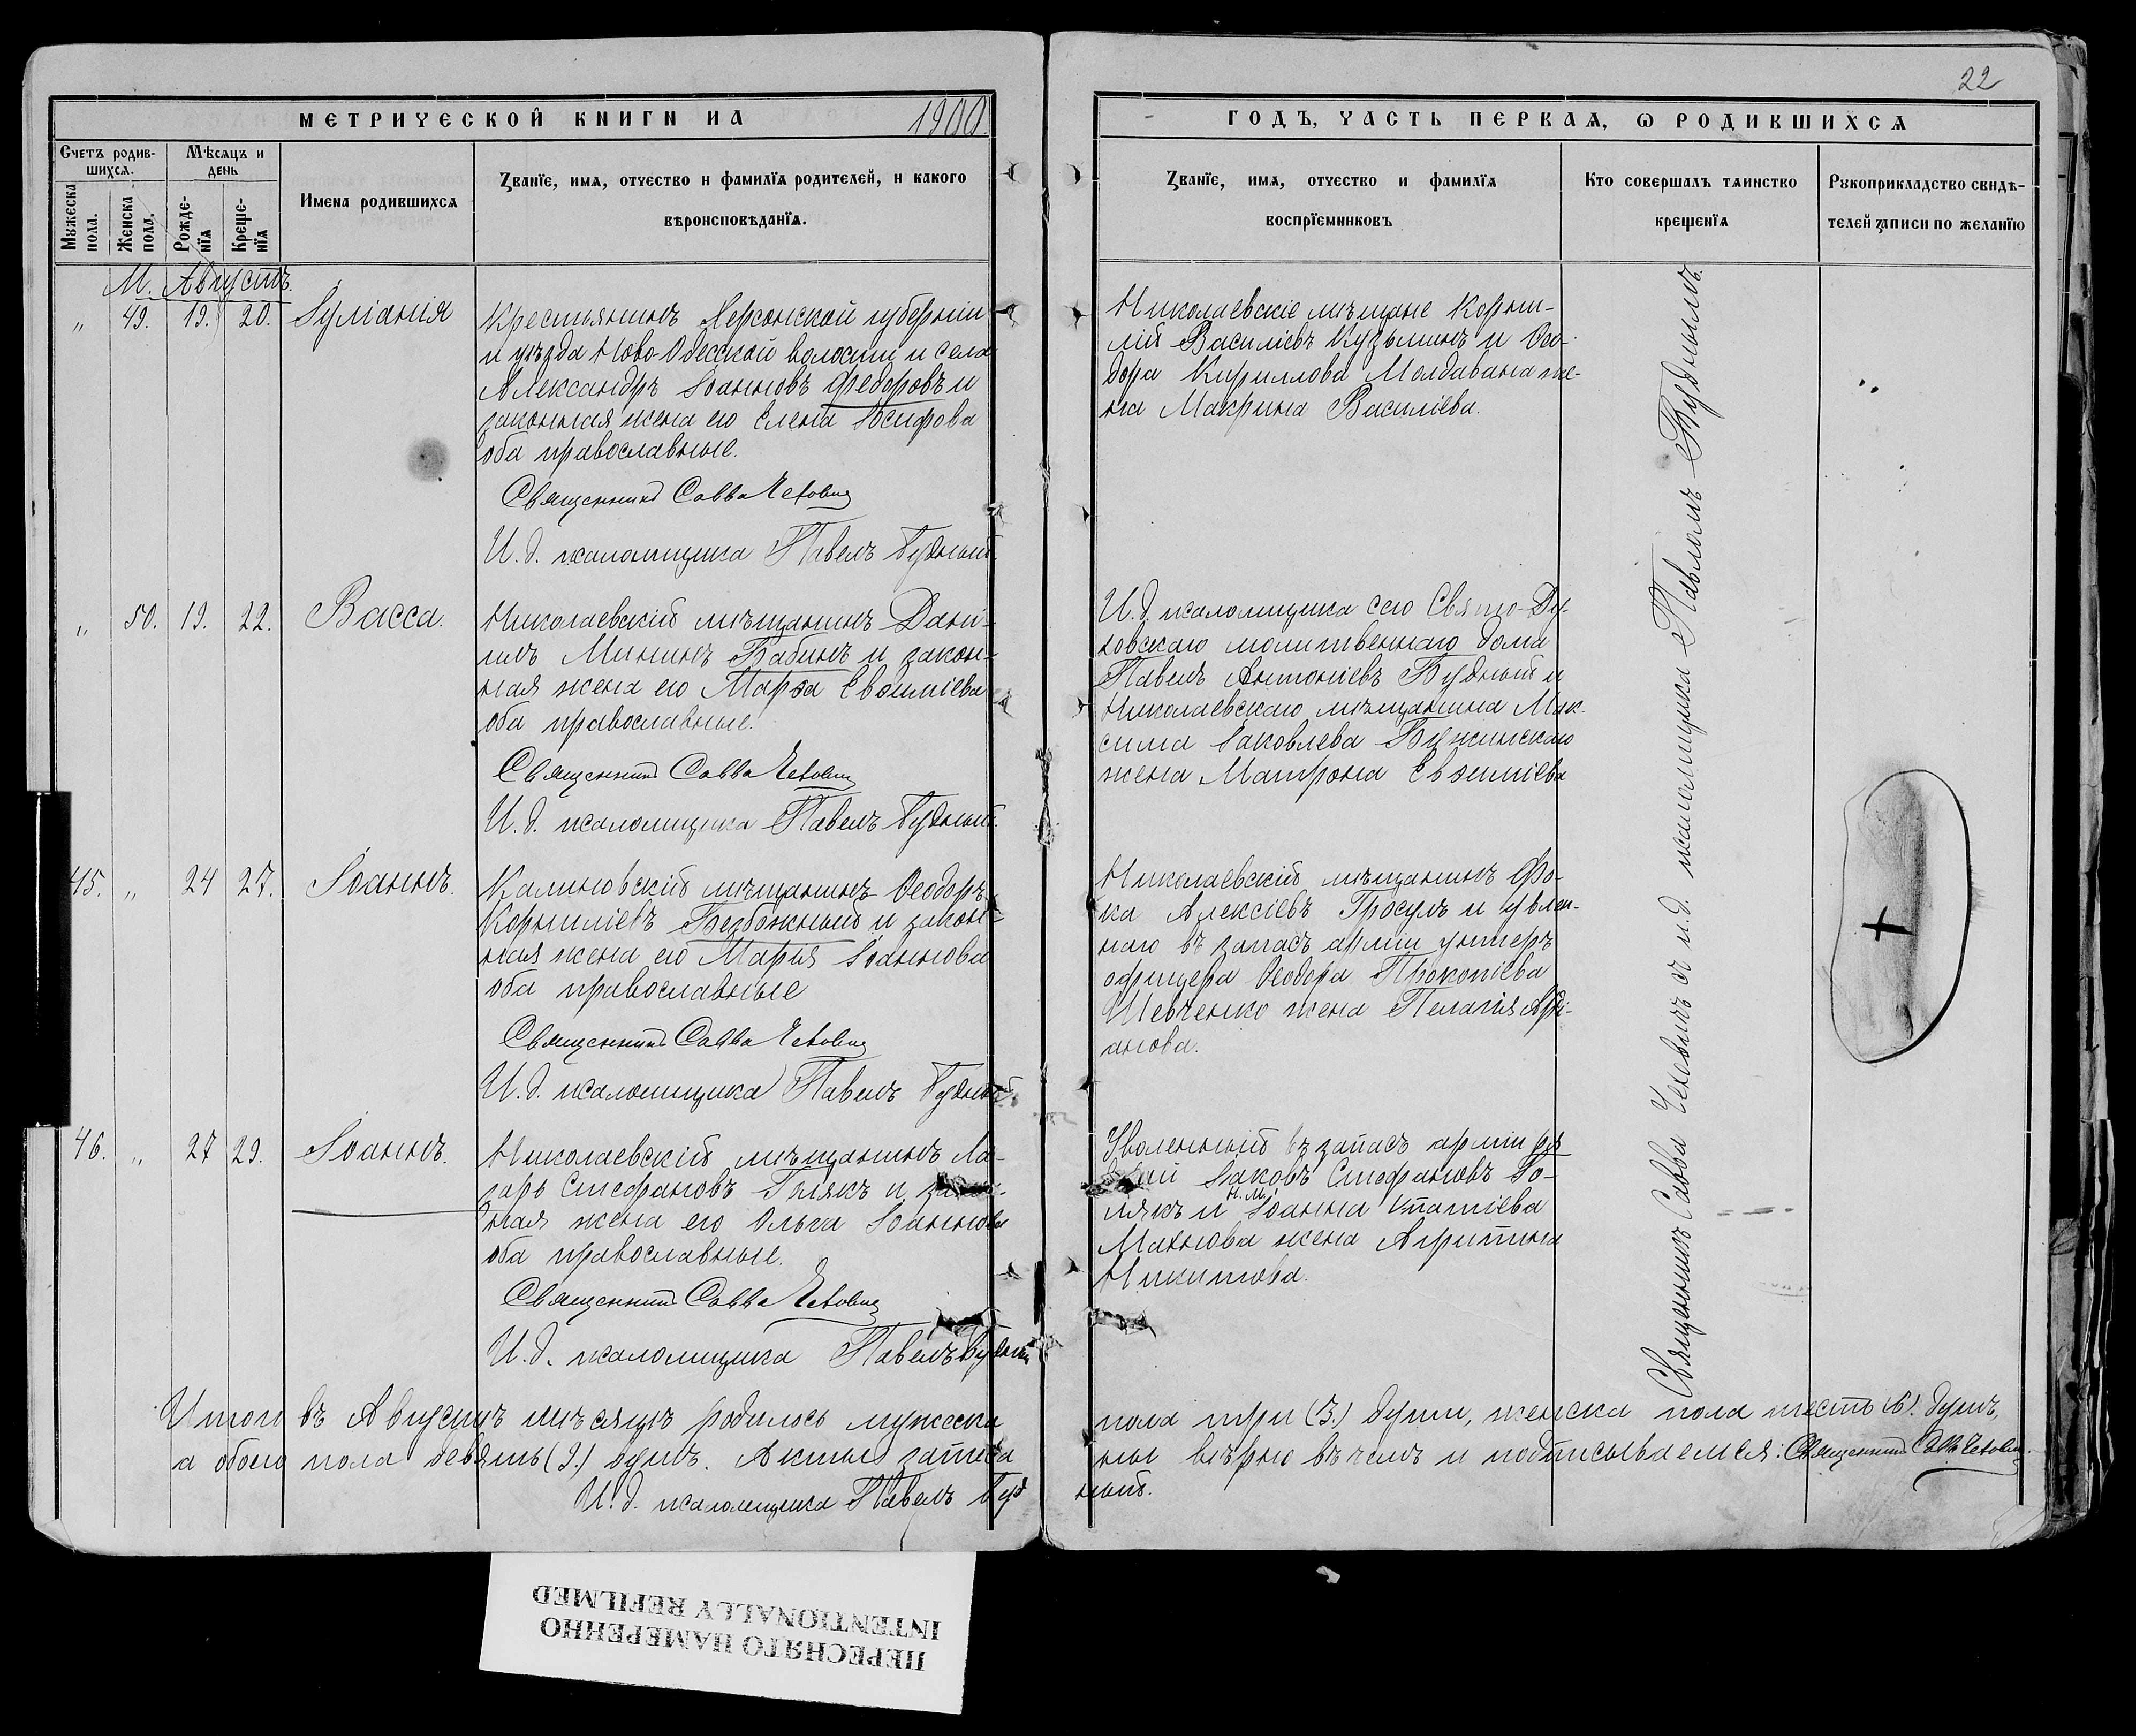 22
МЕТРИЧЕСКОЙ КНИГИ НА 1900
ГОДЪ, ЧАСТЬ ПЕРВАЯ, Ѡ РОДИВШИХСЯ
Счетъ родив-
шихся.
Мужеска
пола.
Женска
пола.
Мѣсяцъ и
день
Рожде-
нїя
Креще-
нїя
Имена родившихся
Званїе, имя, отчество и фамилїя родителей, и какого
вѣроисповѣданїя.
Званїе, имя, отчество и фамилїя
воспрїемниковъ
Кто совершалъ таинство
крещенїя
Рукоприкладство свидѣ-
телей записи по желанїю
М. Августъ.
„ 49. 19. 20. Іуліанія
Крестьянинъ Херсонской губерніи
и уѣзда Ново-Одесской волости и села
Александръ Іоанновъ Федоровъ и
законная жена его Елена Іосифова
оба православные.
Священникъ Савва Чехович
И. д. псаломщика Павелъ Будный
Николаевскіе мѣщане Корни-
лій Василіевъ Кузьминъ и Ѳео-
дора Кириллова Молдавана же-
на Макрина Василіева.
„ 50. 19. 22. Васса.
Николаевскій мѣщанинъ Дани-
илъ Мининъ Бабинъ и закон-
ная жена его Марѳа Евѳиміева
оба православные.
Священникъ Савва Чехович
И. д. псаломщика Павелъ Будный
И. д. псаломщика сего Свято-Ду-
ховскаго молитвеннаго дома
Павелъ Антоніевъ Будный и
Николаевскаго мѣщанина Мак-
сима Іаковлева Бужинскаго
жена Матрона Евѳиміева
45. „ 24 27. Іоаннъ.
Калиновскій мѣщанинъ Ѳеодоръ
Корниліевъ Безбожный и закон-
ная жена его Марія Іоаннова
оба православные
Священникъ Савва Чехович
И. д. псаломщика Павелъ Будный
Николаевскій мѣщанинъ Фо-
ка Алексіевъ Гросулъ и увлен-
наго въ запасъ арміи унтеръ
офицера Ѳеодора Прокопіева
Шевченко жена Пелагія Адрі-
анова.
46. „ 27 29. Іоаннъ.
Николаевскій мѣщанинъ Ла-
зарь Стефановъ Голякъ и закон-
ная жена его Ольга Іоаннова
оба православные.
Священникъ Савва Чехович
И. д. псаломщика Павелъ Будный
Уволенный въ запасъ арміи ря-
довой Іаковъ Стефановъ Го-
лякъ и Н.М. Іоанна Ипатіева
Махнова жена Агрипина
Никитова.
Священникъ Савва Чеховичъ и и. д. псаломщика Павломъ Буднымъ.
Итого въ Августѣ мѣсяцѣ родилось мужеска пола три (3.) души, женска пола шесть (6). душъ,
а обоего пола девять (9.) душъ. Акты записаны вѣрно въ чемъ и подписываемся: Священникъ Савва Чехович.
И. д. псаломщика Павелъ Будный.
ПЕРЕСНЯТО НАМЕРЕННО
INTENTIONALLY REFILMED